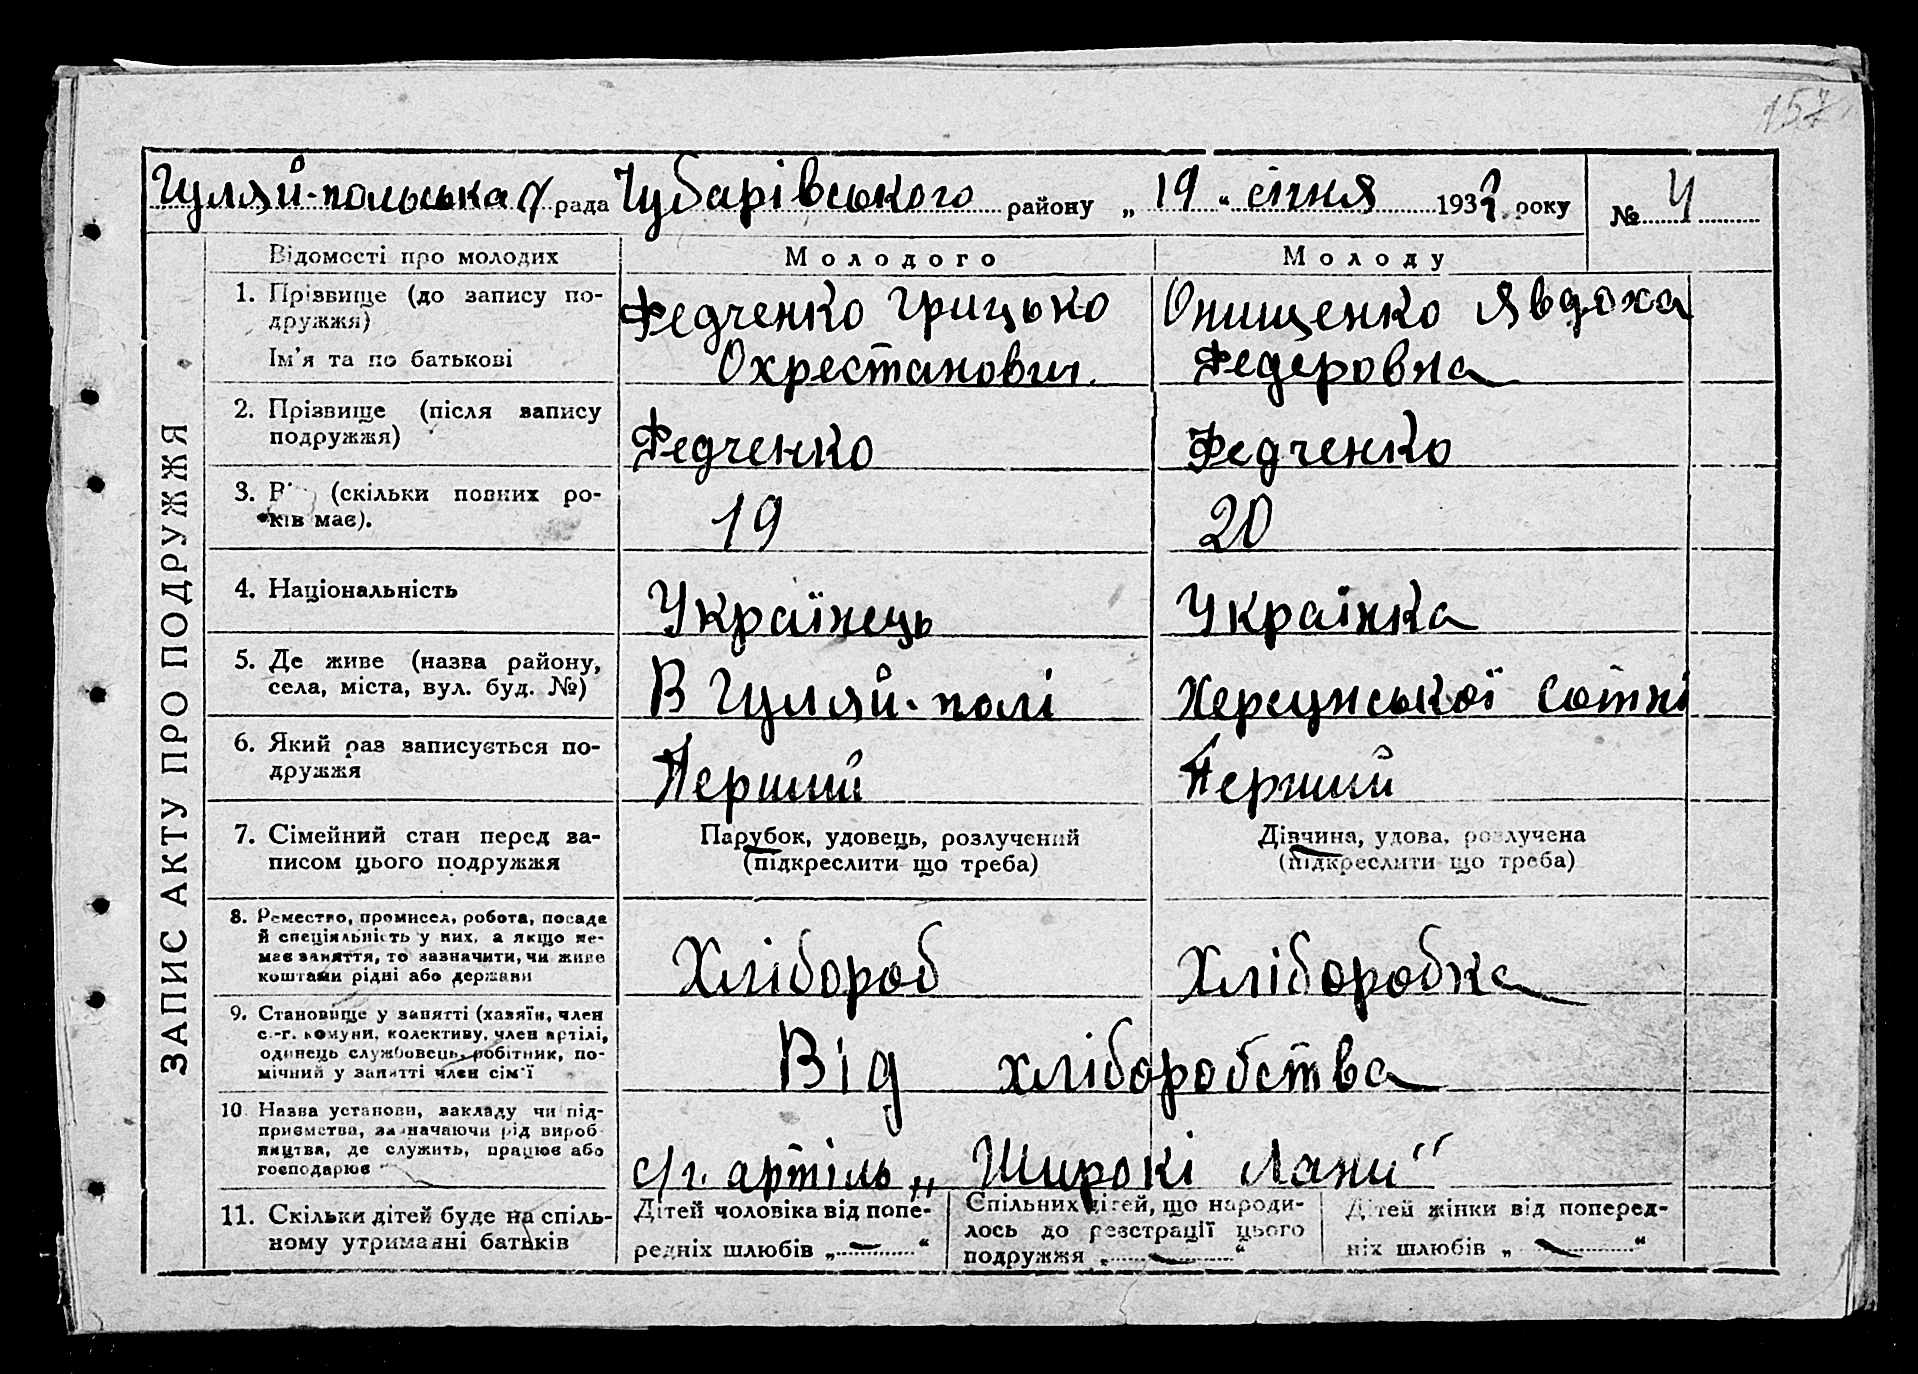 157
Гуляй-польська с/рада Чубарівського району „19“ січня 1932 року № 4
ЗАПИС АКТУ ПРО ПОДРУЖЖЯ
Відомості про молодих
Молодого
Молоду
1. Прізвище (до запису по-
дружжя)
Ім'я та по батькові
Федченко Грицько
Охрестанович
Онищенко Явдоха
Федеровна
2. Прізвище (після запису
подружжя)
Федченко
Федченко
3. (скільки повних ро-
ків має).
19
20
4. Національність
Українець
Українка
5. Де живе (назва району,
села, міста, вул. буд. №)
В Гуляй-полі
Херсунської Сотні
6. Який раз записується по-
дружжя
Перший
Перший
7. Сімейний стан перед за-
писом цього подружжя
Парубок, удовець, розлучений
(підкреслити що треба)
Дівчина, удова, розлучена
(підкреслити що треба)
8. Ремество, промисел, робота, посада
й спеціяльність у них, а якщо не-
має заняття, то зазначити, чи живе
коштами рідні або держави
Хлібороб
Хліборобка
9. Становище у занятті (хазяїн, член
с.-г. комуни, колективу, член артілі,
одинець службовець, робітник, по-
мічний у занятті член сім'ї
Від хліборобства
10 Назва установи, закладу чи під-
приємства, зазначаючи рід вироб-
ництва, де служить, працює або
господарює
с/г. артіль „Широкі Лани"
11. Скільки дітей буде на спіль-
ному утриманні батьків
Дітей чоловіка від попе-
редніх шлюбів „ — “
Спільних дітей, що народи-
лось до реєстрації цього
подружжя „ — “
Дітей жінки від поперед-
ніх шлюбів „ — “